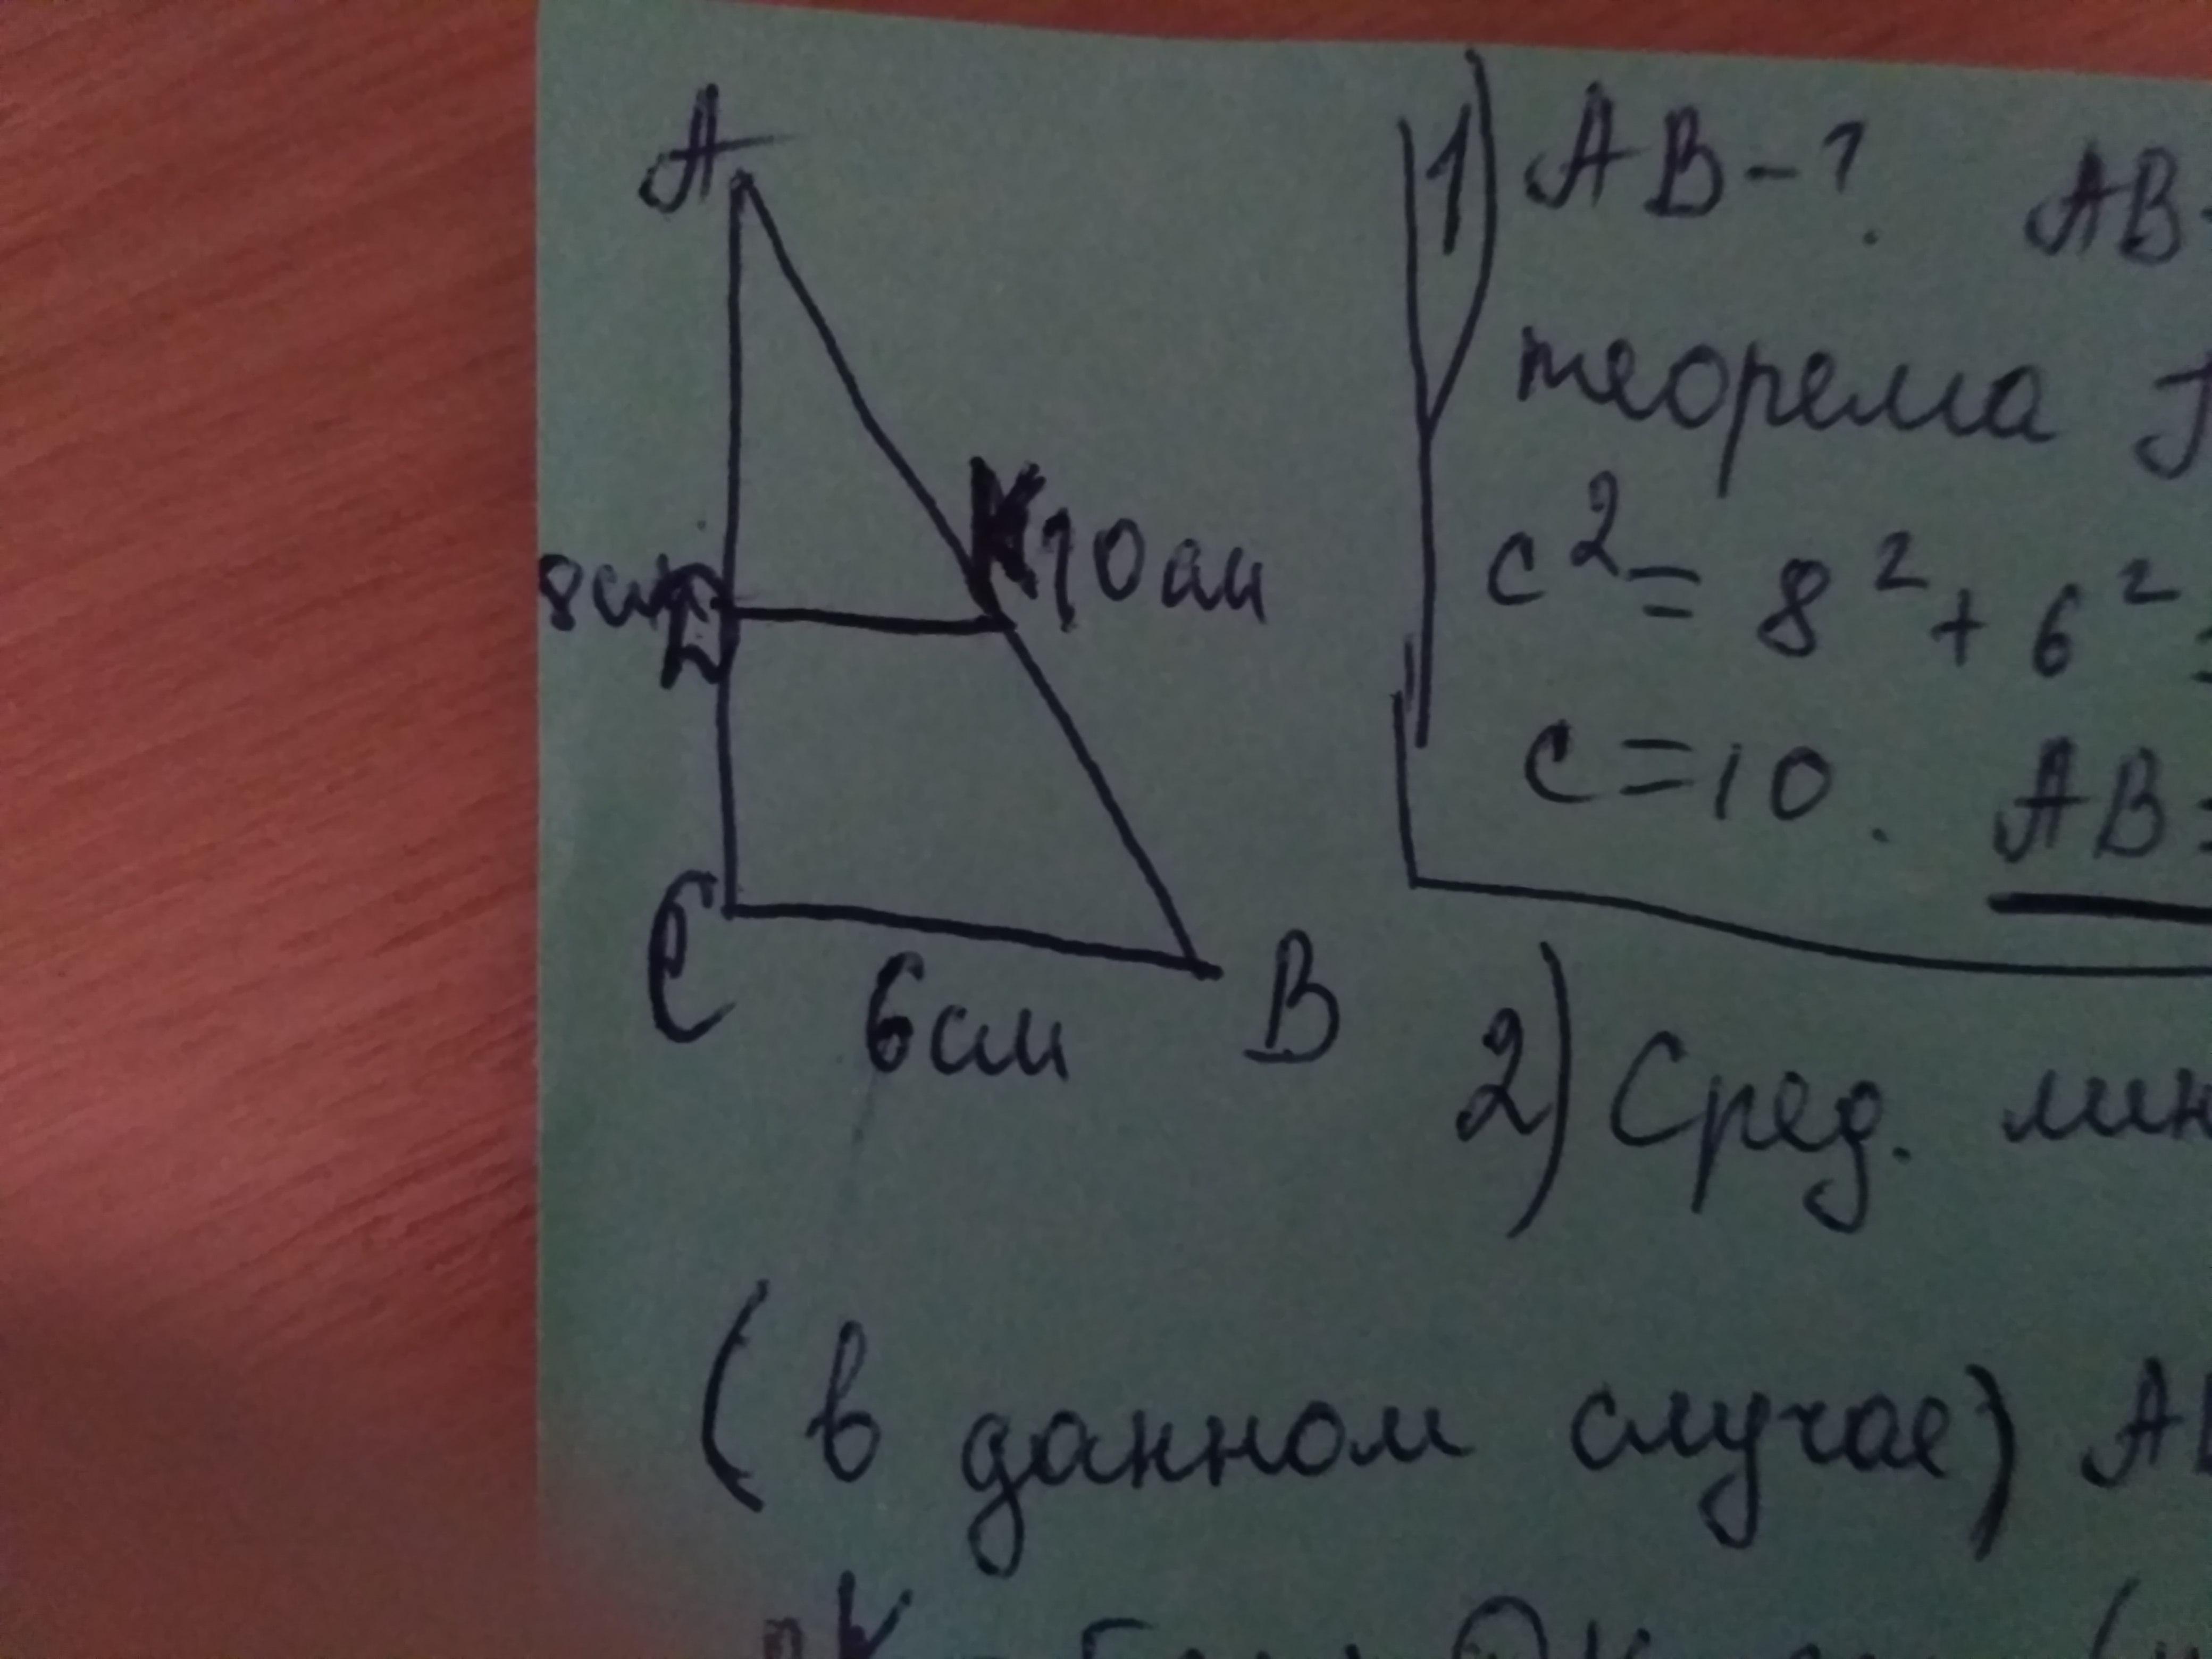 A
8см
K
10см
C
6см
B
1) AB-?
AB
теорема
c²= 8²+ 6²=
c=10.
AB=
2) Сред. лин
(в данном случае)